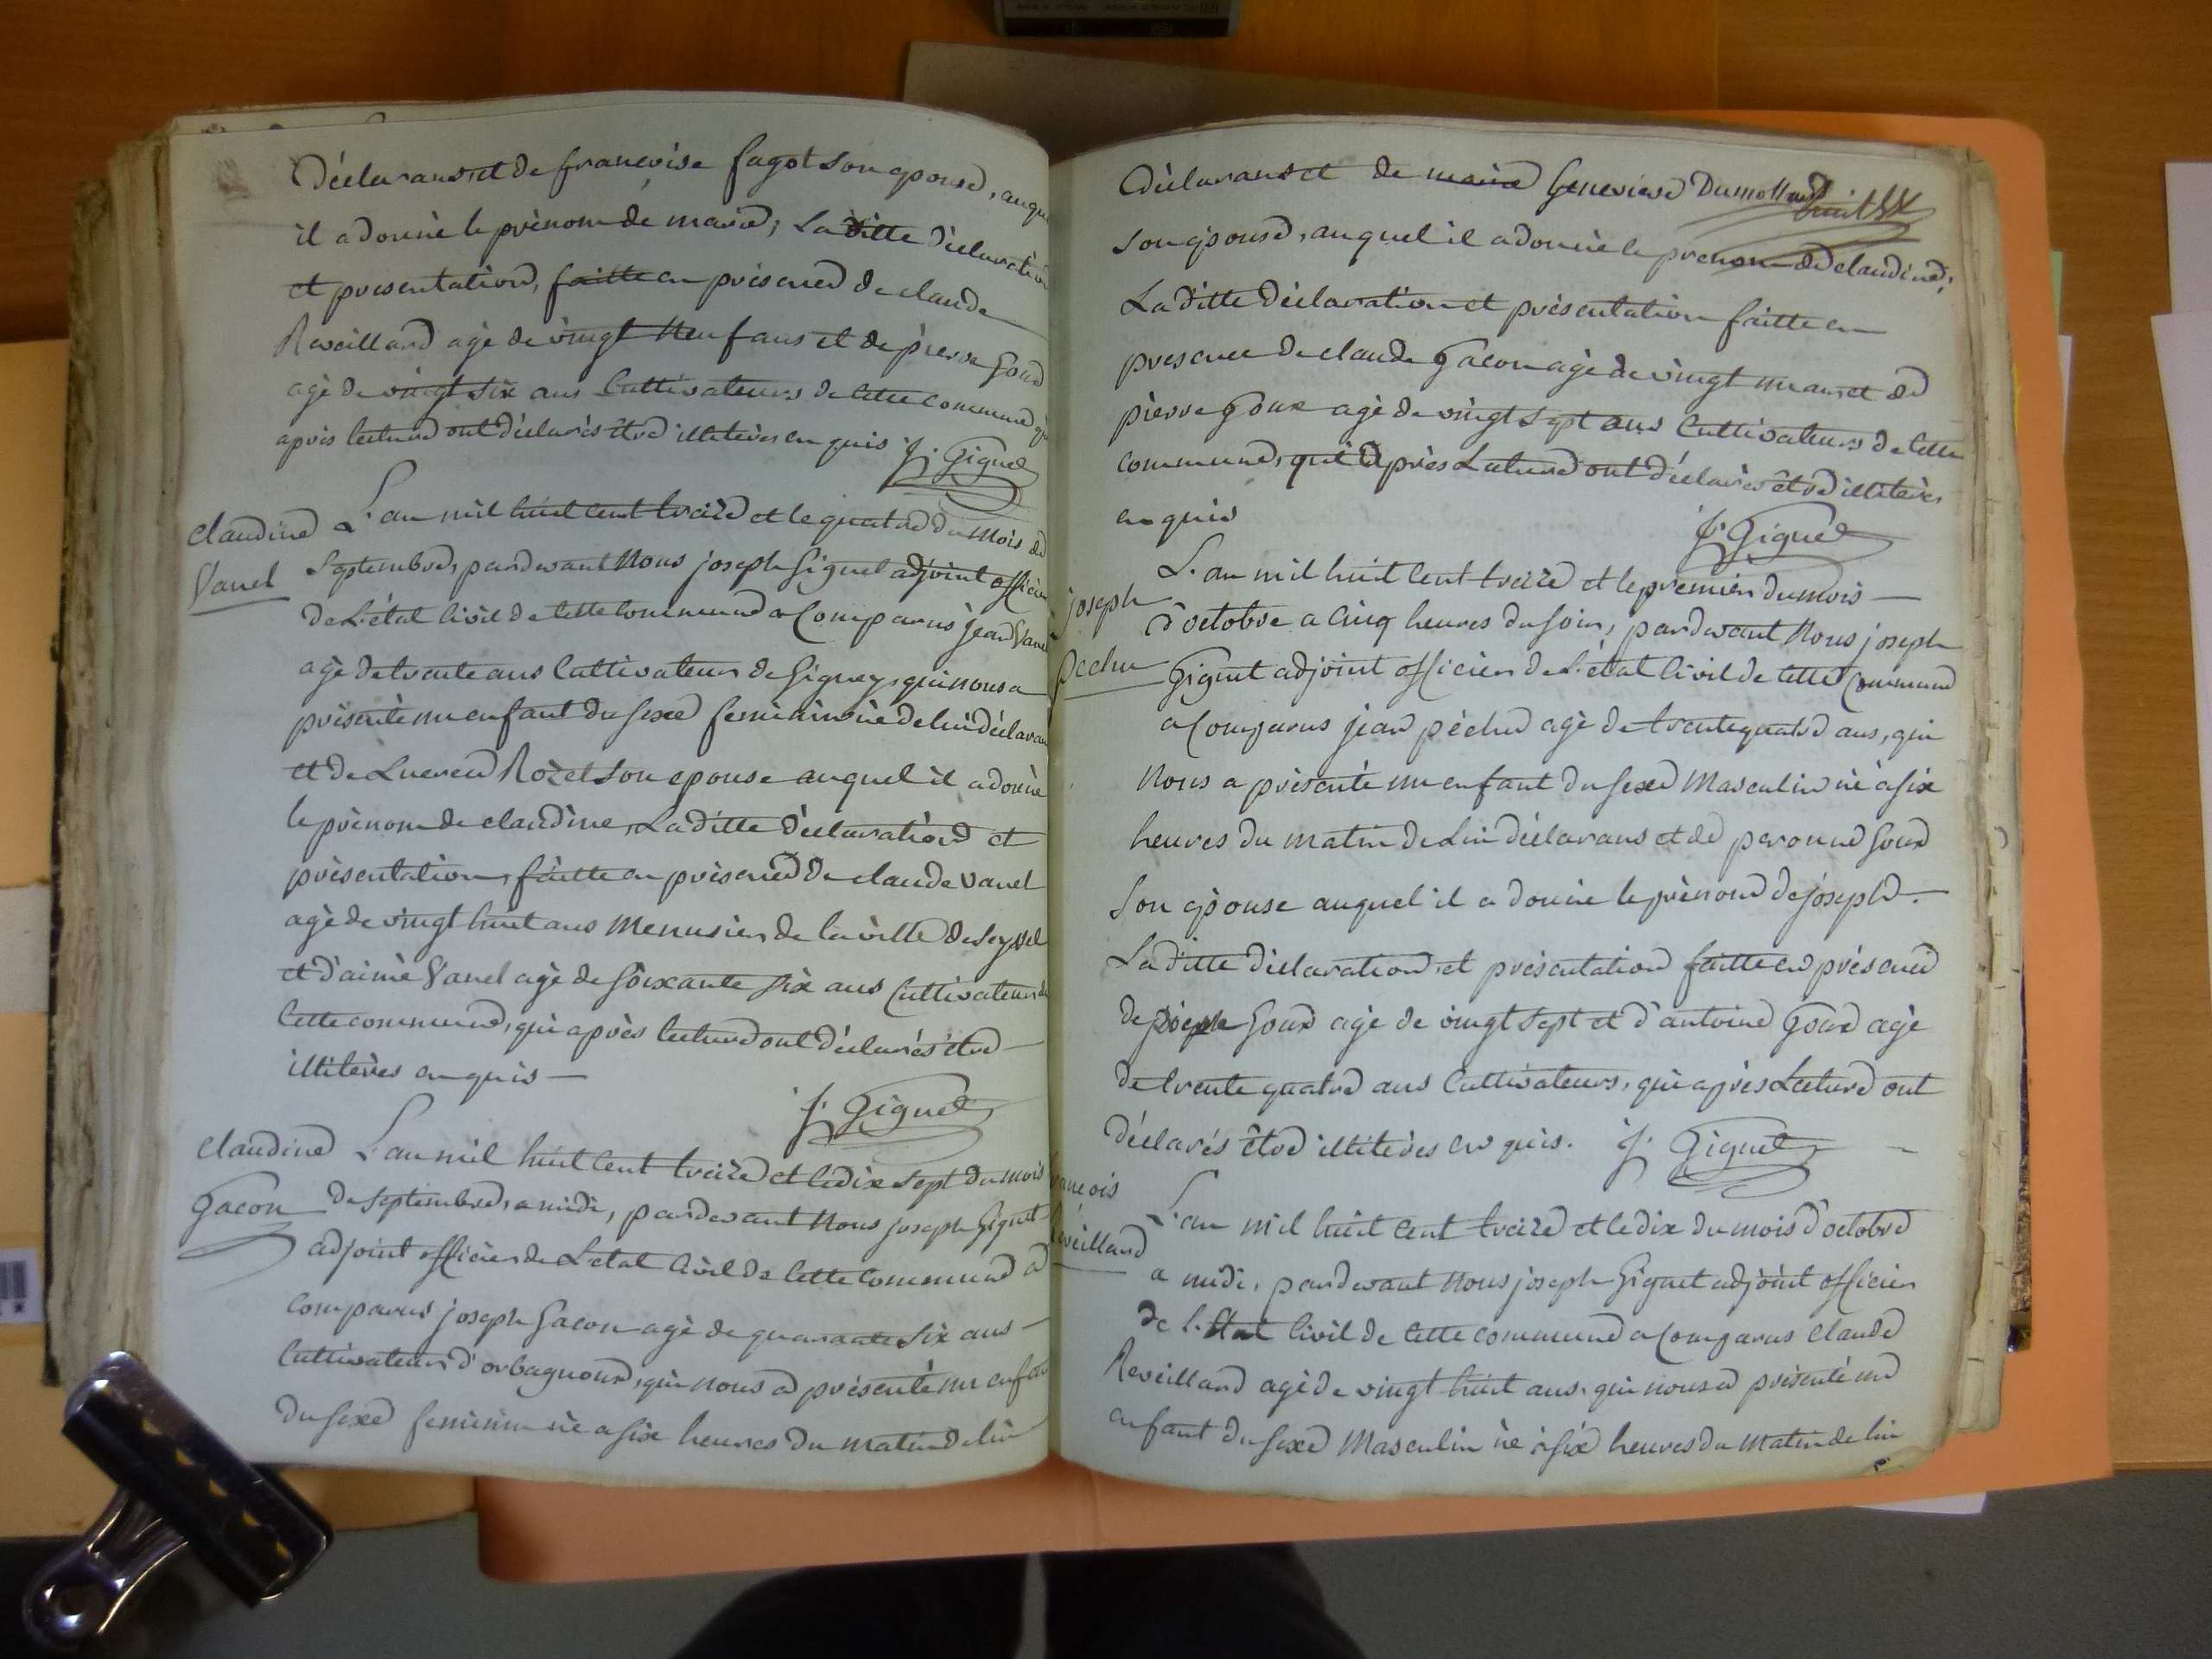 Déclarans, et de francoise fagot son epouse, auquel
il a donné le prénom de marie; La ditte déclaration
et presentation, faitte en présence de claude
Reveilland agé de vingt neuf ans et de pierre Goux
agé de vingt six ans Cultivateurs de cette commune qui
après lecture ont déclarés être illitérés en quis J. Giguet
claudine
Vanel
L'an mil huit cent treize et le quatre du mois de
Septembre, pardevant Nous joseph Giguet adjoint officier
de L'état Civil de cette Commune a Comparus jean Vanel
agé de trente ans Cultivateur de Gignez, qui nous a
présenté un enfant du sexe feminin né de lui déclarans
et de Lucrece Rozet Son epouse auquel il a donné
le prénom de claudine, La ditte déclaration et
présentation, faitte en présence de claude Vanel
agé de vingt huit ans Menusier de la ville de Seyssel
et d'aimé Vanel agé de soixante six ans Cultivateur de
Cette commune, qui après lecture ont déclarés être
illitérés en quis
J. Giguet
claudine
Gacon
L'an mil huit cent treize et le dix sept du mois
de septembre, a midi, pardevant Nous joseph Giguet
adjoint officier de L'état Civil de Cette Commune a
comparus joseph Gacon agé de quarante six ans
Cultivateur d'orbagnoux, qui nous a présenté un enfant
du sexe feminin né a six heures du matin de lui
huit
Déclarans et de marie Genevieve Dumollard
Son épouse, auquel il a donné le prenom de claudine;
La ditte déclaration et présentation faitte en
presence de claude Gacon agé de vingt un ans et de
pierre Goux agé de vingt sept ans Cultivateurs de Cette
commune, qui après Lecture ont déclarés être illitérés
en quis
J. Giguet
joseph
pechu
L'an mil huit cent treize et le premier du mois
d'octobre a cinq heures du soir, pardevant Nous joseph
Giguet adjoint officier de L'état Civil de cette Commune
a Comparus jean péchu agé de trente quatre ans, qui
Nous a présenté un enfant du sexe Masculin né à six
heures du matin de Lui déclarans et de peronne Goux
Son épouse auquel il a donné le prénom de joseph.
La ditte déclaration, et présentation faitte en présence
de Goux agé de vingt sept et d'antoine Goux agé
de trente quatre ans Cultivateurs, qui après Lecture ont
déclarés être illitérés en quis. J. Giguet
francois
Reveilland
L'an mil huit cent treize et le dix du mois d'octobre
a midi, pardevant Nous joseph Giguet adjoint officier
de l'Etat Civil de Cette commune a Comparus claude
Reveilland agé de vingt huit ans, qui nous a présenté un
enfant du sexe Masculin né à six heures du Matin de lui